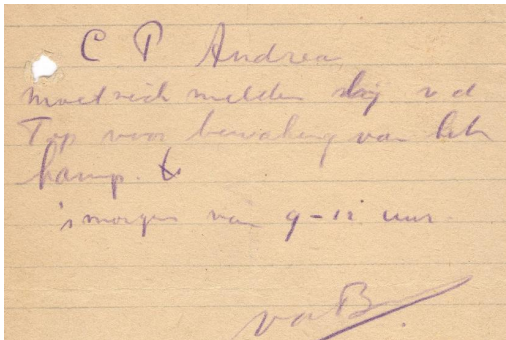 C P Andrea
moet zich melden bij v d
Top voor bewaking van het
kamp.
's morgens van 9-12 uur.
v d B